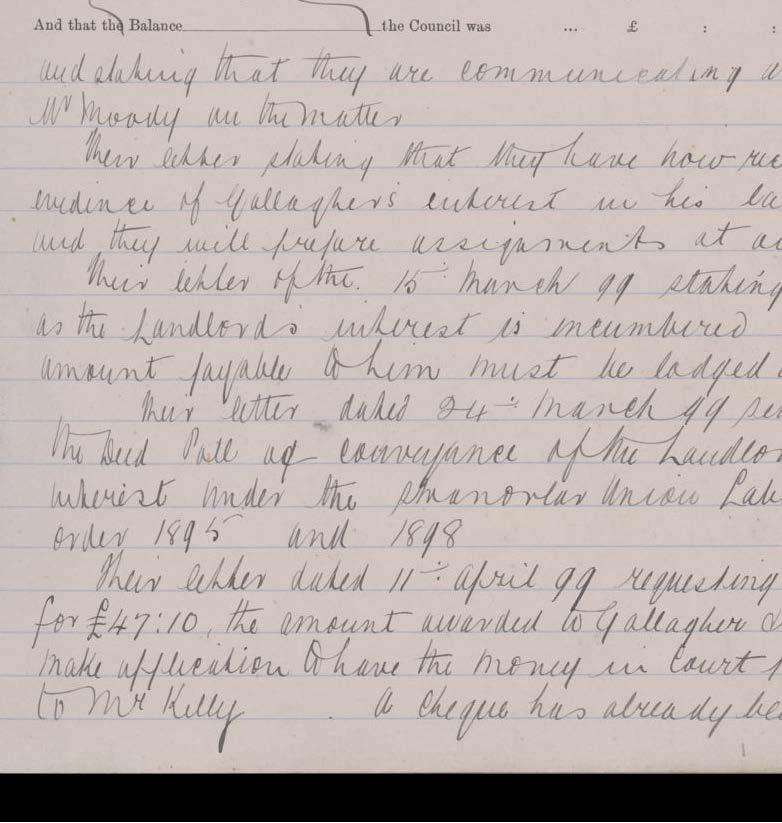 And that the Balance the Council was ... £ : :
and stating that they are communicating
Mr Moody on the matter
Their letter stating that they have now rec
evidence of Gallagher's interest in his
and they will prepare assignments at
Their letter of the 15th March 99 stating
as the Landlord's interest is incumbered
amount payable to him must be lodged
Their letter dated 24th March 99 se
the Deed Poll of conveyance of the Landlor
interest under the Stranorlar Union Lab
order 1895 and 1898
Their letter dated 11th April 99 requesting
for £47:10, the amount awarded to Gallagher
make application to have the money in court
to Mr Kelly. A cheque has already be